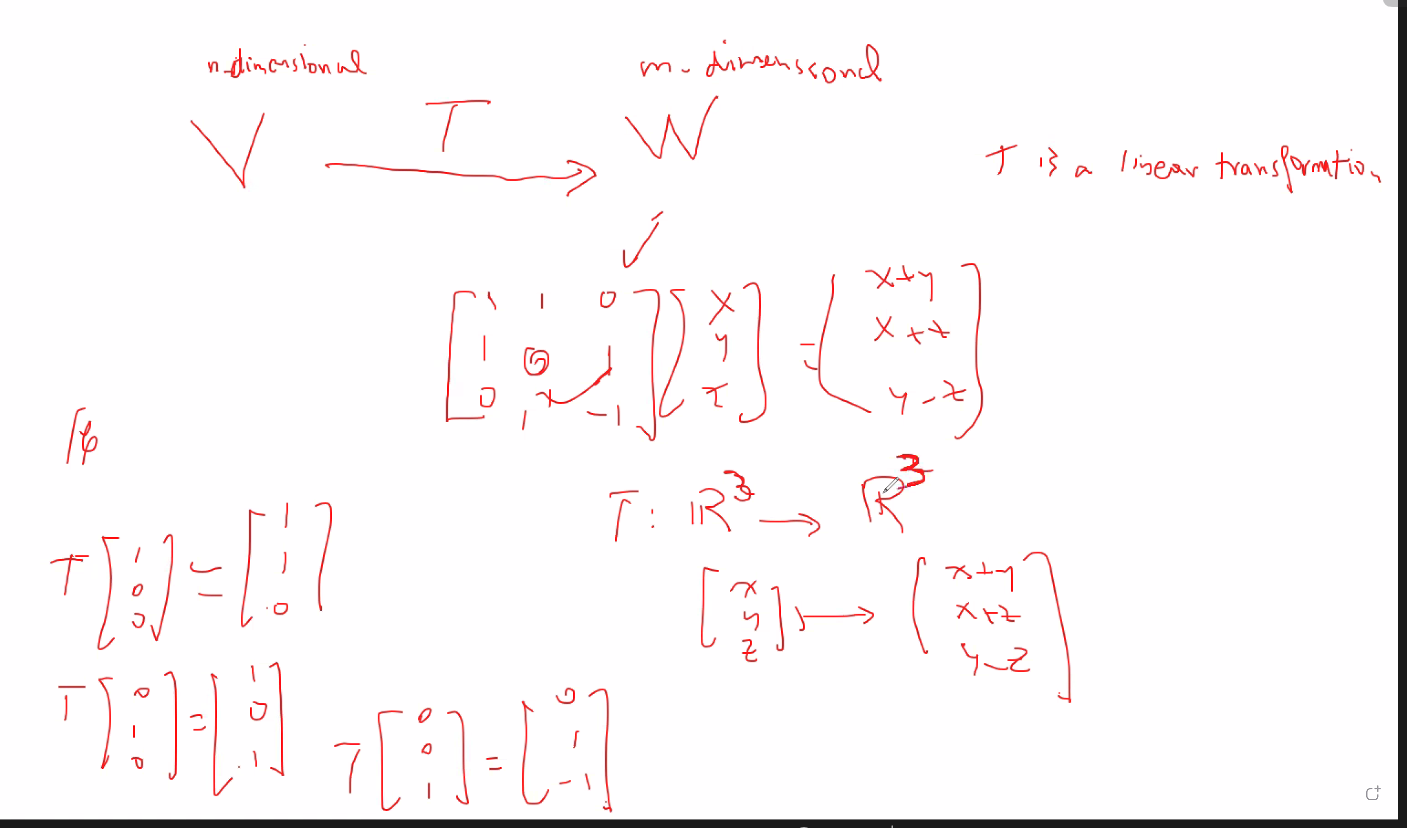 n-dimensional m-dimensional
V T → W
T is a linear transformation
✓
[1 1 0; 1 0 1; 0 1 -1] [x; y; z] = [x+y; x+z; y-z]
T: ℝ³ → ℝ³
[x; y; z] ↦ [x+y; x+z; y-z]
T[1; 0; 0] = [1; 1; 0]
T[0; 1; 0] = [1; 0; 1]
T[0; 0; 1] = [0; 1; -1]